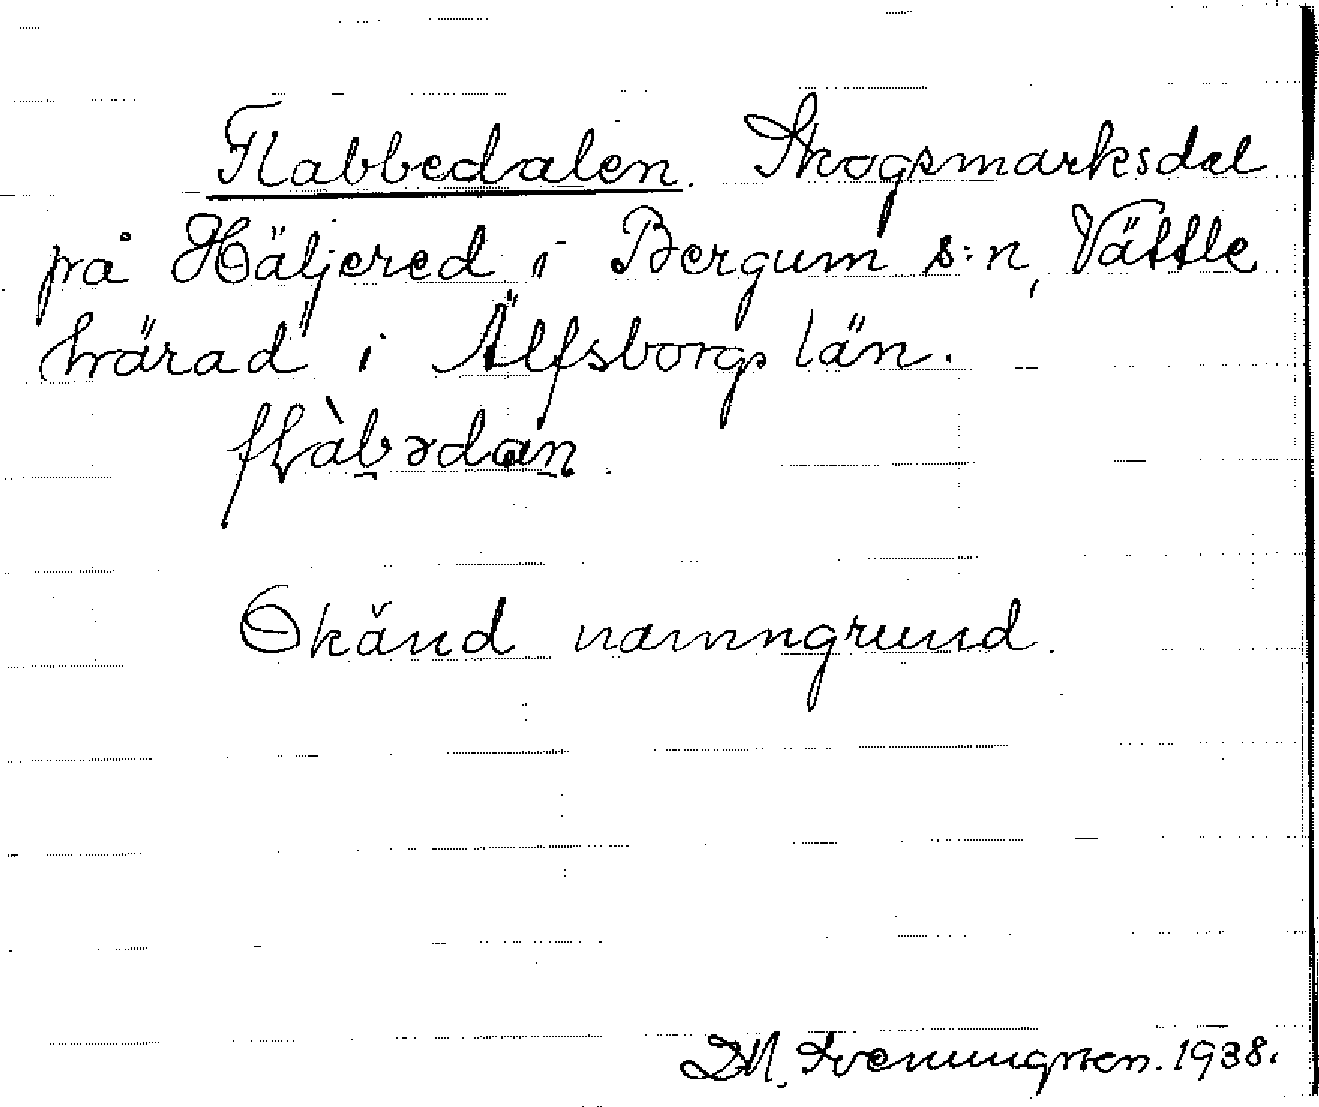 Flabbedalen. Skogsmarksdal
på Häljered i Bergum s:n, Vättle
härad i Älfsborgs län.
flàbədan.
Okänd namngrund.
D.M. Svenungsson. 1938.